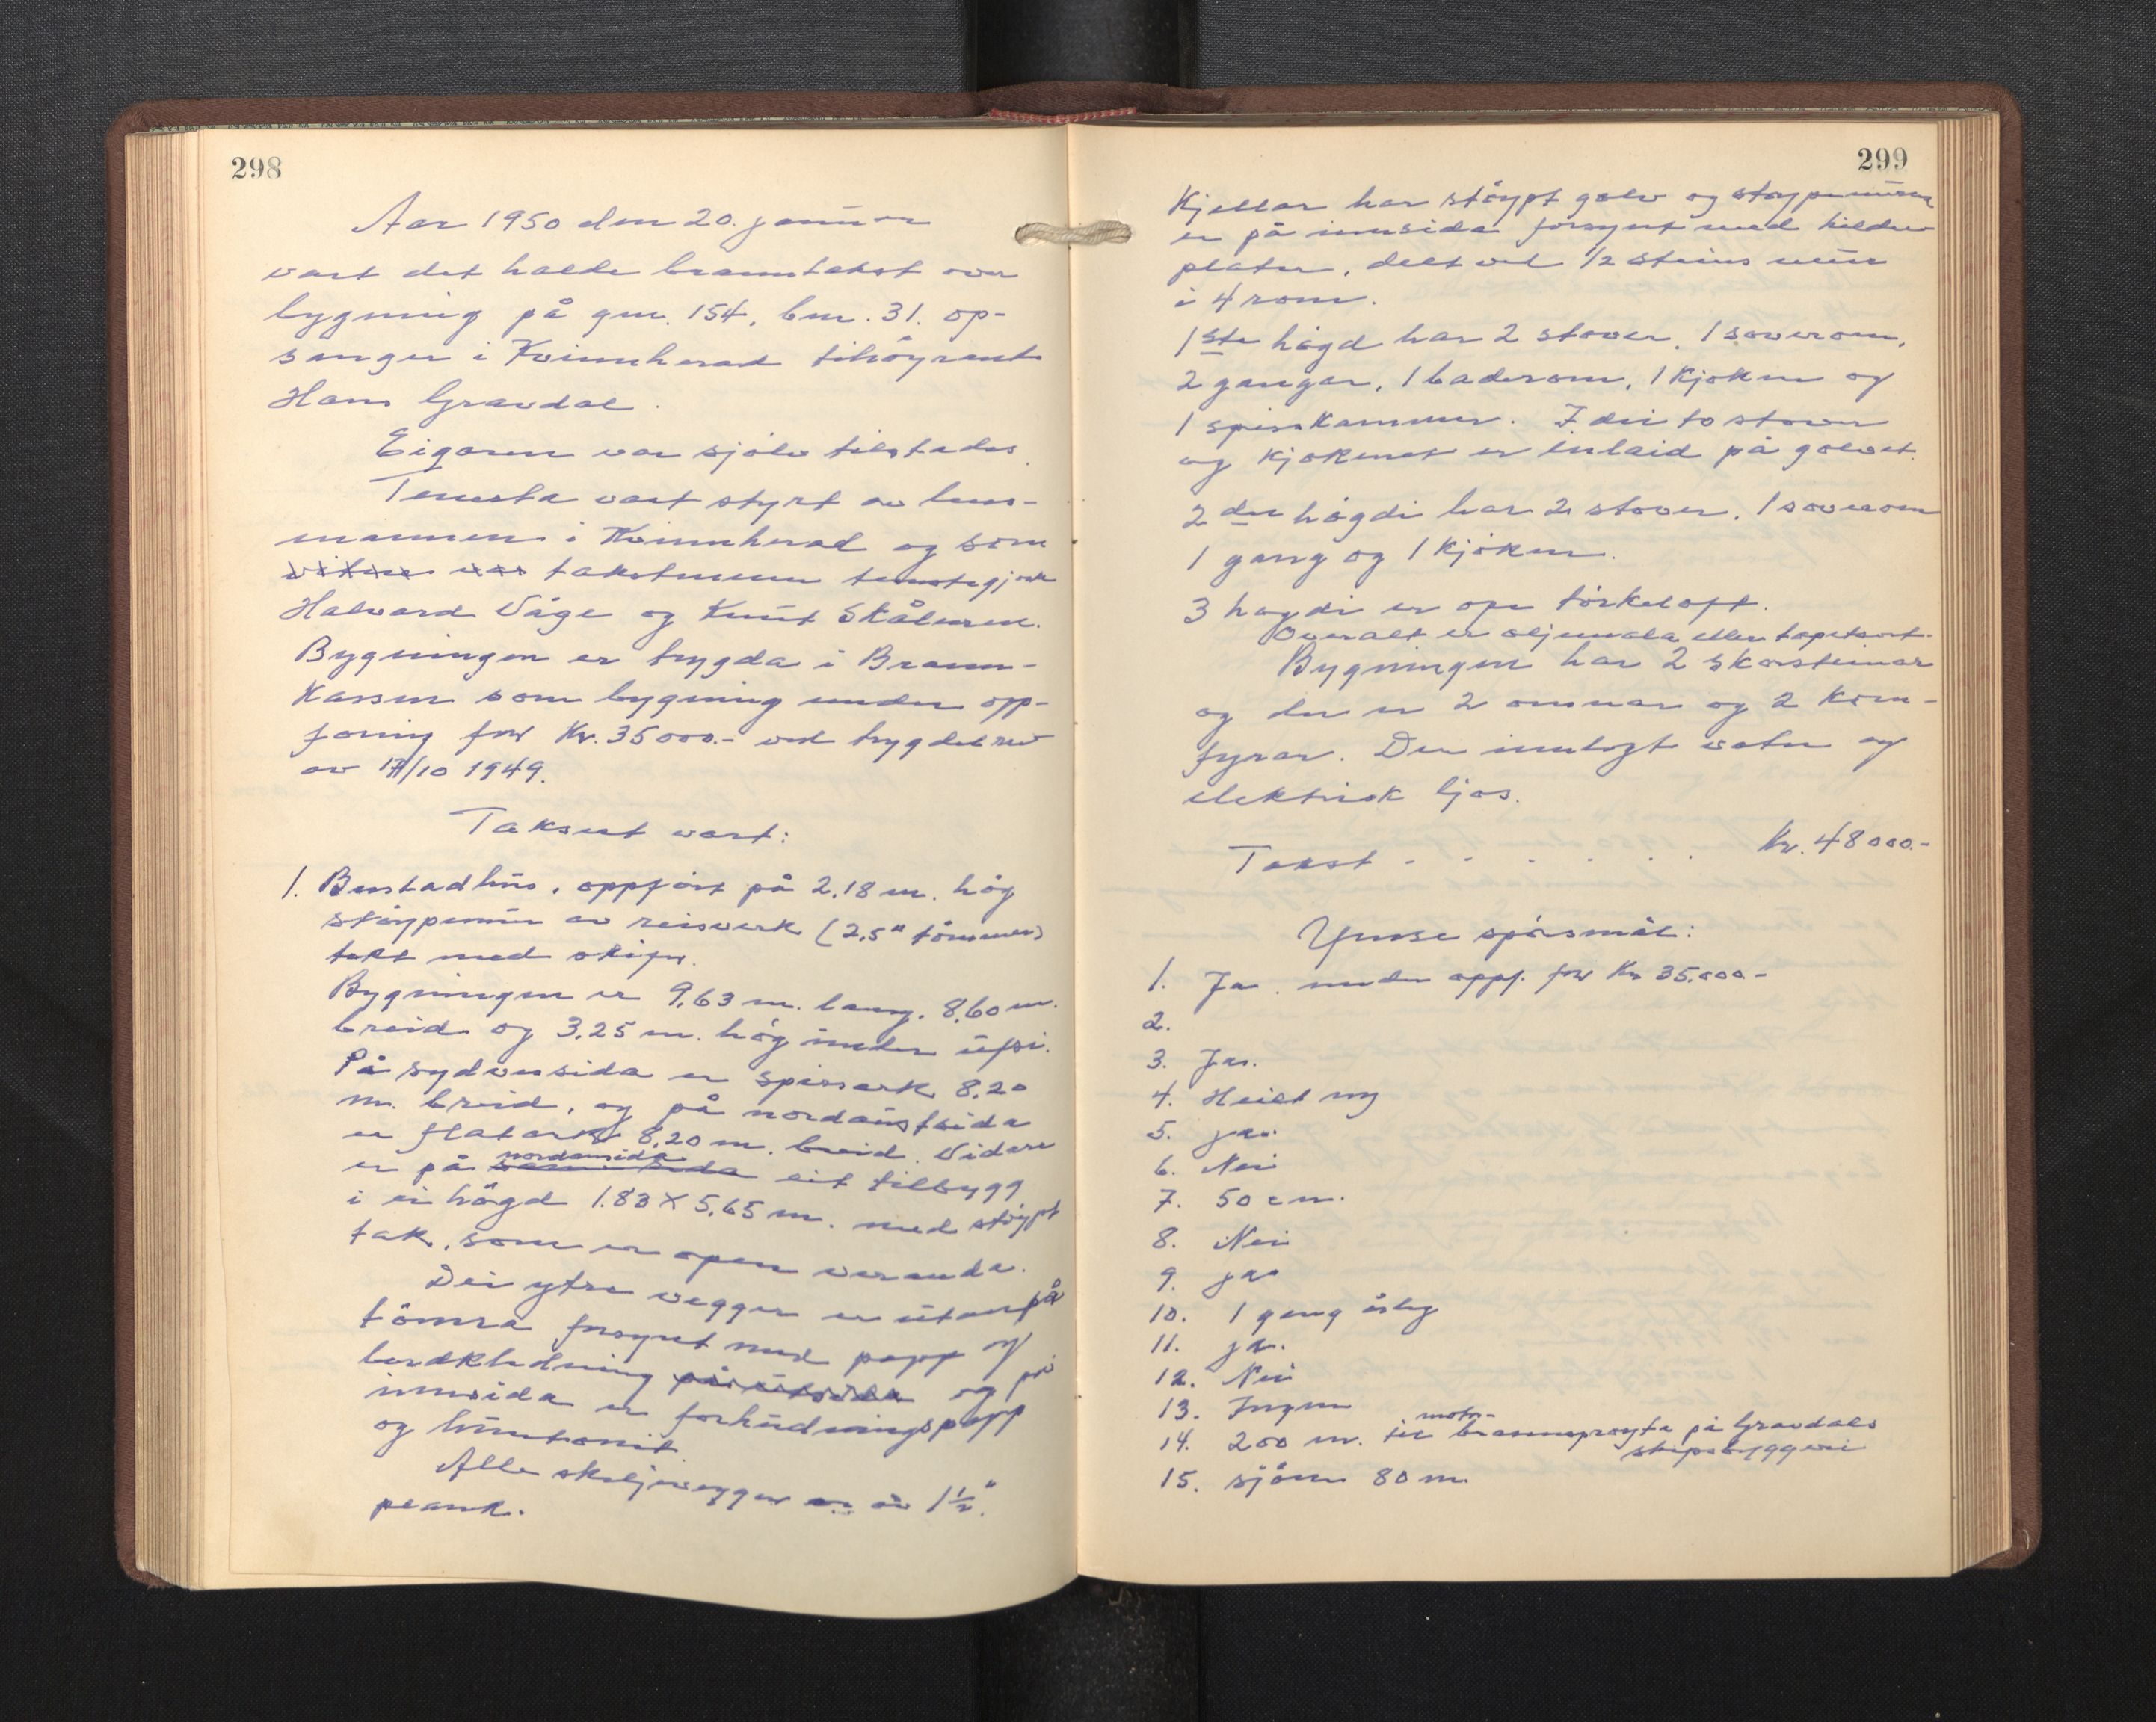 298
Aar 1950 den 20. januar
vart det halde branntakst over
bygning på gnr. 154, bnr. 31. op-
sanger i Kvinnherad tilhøyrant
Hans Gravdal.
Eigaren var sjølv tilstades.
Tenesta vart styrt av lens-
mannen i Kvinnherad og som
vitne var takstmenn tenestegjorde
Halvard Våge og Knut Skåluren.
Bygningen er trygda i Brann-
kassen som bygning under opp-
føring for Kr. 35000.- ved trygdebrev
av 17/10 1949.
Taksert vart:
1. Bustadhus, oppført på 2,18 m. høg
støypemur av reisverk (2,5" tømmer)
tekt med skifer.
Bygningen er 9,63 m. lang, 8,60 m.
breid og 3,25 m. høg under ufsi.
På sydvesida er spissark 8,20
m. breid, og på nordaustsida
er flatark 8,20 m. breid. Vidare
nordansida
er på samme sida eit tilbygg
i ei høgd 1.83 x 5,65 m. med støypt
tak, som er open veranda.
Dei ytre vegger er utanpå
tømra forsynt med papp og
bordkledning på utsida og på
innsida er forhudningspapp
og huntonit.
Alle skiljevegger er av 1½"
plank.
299
Kjellar har støypt golv og støypemuren
er på innsida forsynt med kelder
plater, delt ved 1/2 steins mur
i 4 rom.
1ste høgd har 2 stover, 1 soverom,
2 gangar, 1 baderom, 1 kjøken og
1 spiskammer. I dei to stover
og kjøkenet er inlaid på golvet.
2den høgdi har 2 stover, 1 soverom
1 gang og 1 kjøken.
3 høgdi er ope tørkeloft.
Overalt er oljemala eller tapetsert.
Bygningen har 2 skorsteinar
og der er 2 omnar og 2 kom-
fyrar. Der innlagt vatn og
elektrisk ljos.
Takst - - - - - - Kr. 48000.-
Ymse spørsmål:
1. Ja. under oppf. for Kr 35.000-
2.
3. Ja.
4. Heilt ny
5. ja.
6. Nei
7. 50 cm.
8. Nei
9. ja
10. 1 gang årleg
11. ja.
12. Nei
13. Ingen
motor-
14. 200 m. til brannsprøyte på Gravdals
skipsbyggeri
15. sjøen 80 m.